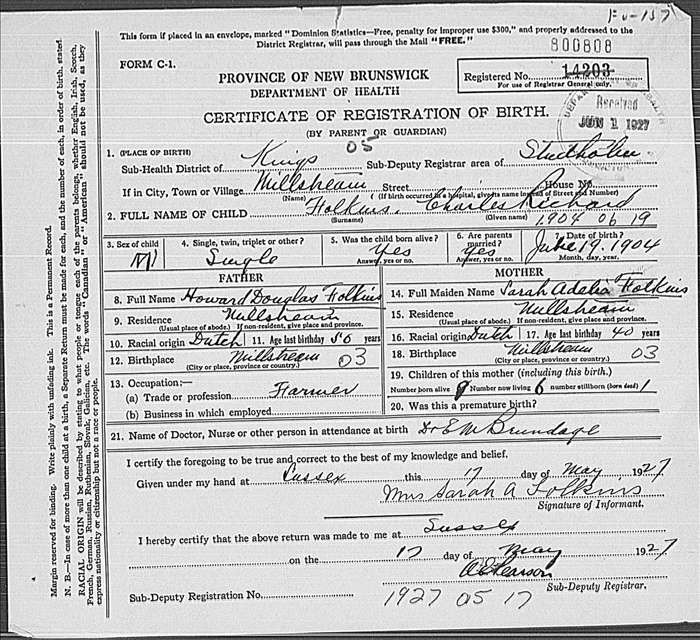 This form if placed in an envelope, marked "Dominion Statistics—Free, penalty for improper use $300," and properly addressed to the
District Registrar, will pass through the Mail "FREE."
800808
FORM C-1.
PROVINCE OF NEW BRUNSWICK
DEPARTMENT OF HEALTH
Registered No. 14203
For use of Registrar General only.
CERTIFICATE OF REGISTRATION OF BIRTH.
(BY PARENT OR GUARDIAN)
Received
JUN 1 1927
05
1. (PLACE OF BIRTH)
Sub-Health District of Kings Sub-Deputy Registrar area of Studholm
If in City, Town or Village Millstream Street House No.
(Name) (If birth occurred in a hospital, give its name instead of Street and Number)
2. FULL NAME OF CHILD Folkins, Charles Richard
(Surname) (Given name) 1904 06 19
3. Sex of child M
4. Single, twin, triplet or other? Single
5. Was the child born alive? Yes
Answer, yes or no.
6. Are parents married? Yes
Answer, yes or no.
7. Date of birth? June 19, 1904
Month, day, year.
FATHER
8. Full Name Howard Douglas Folkins
9. Residence Millstream
(Usual place of abode.) If non-resident, give place and province.
10. Racial origin Dutch 11. Age last birthday 50 years
12. Birthplace Millstream 03
(City or place, province or country.)
13. Occupation:—
(a) Trade or profession Farmer
(b) Business in which employed
MOTHER
14. Full Maiden Name Sarah Adalia Folkins
15. Residence Millstream
(Usual place of abode.) If non-resident, give place and province.
16. Racial origin Dutch 17. Age last birthday 40 years
18. Birthplace Millstream 03
(City or place, province or country.)
19. Children of this mother (including this birth.)
Number born alive Number now living 6 number stillborn (born dead) 1
20. Was this a premature birth?
21. Name of Doctor, Nurse or other person in attendance at birth Dr E W Brundage
I certify the foregoing to be true and correct to the best of my knowledge and belief.
Given under my hand at Sussex this 17 day of May 1927
Mrs Sarah A Folkins
Signature of Informant.
I hereby certify that the above return was made to me at Sussex
on the 17 day of May 1927
Sub-Deputy Registrar.
Sub-Deputy Registration No.
1927 05 17
Margin reserved for binding. Write plainly with unfading ink. This is a Permanent Record.
N. B.—In case of more than one child at a birth, a Separate Return must be made for each, and the number of each, in order of birth, stated.
RACIAL ORIGIN will be described by stating to what people or tongue each of the parents belongs, whether English, Irish, Scotch,
French, German, Russian, Ruthenian, Slovak, Galician, etc. The words "Canadian" or "American" should not be used, as they
express nationality or citizenship but not a race or people.